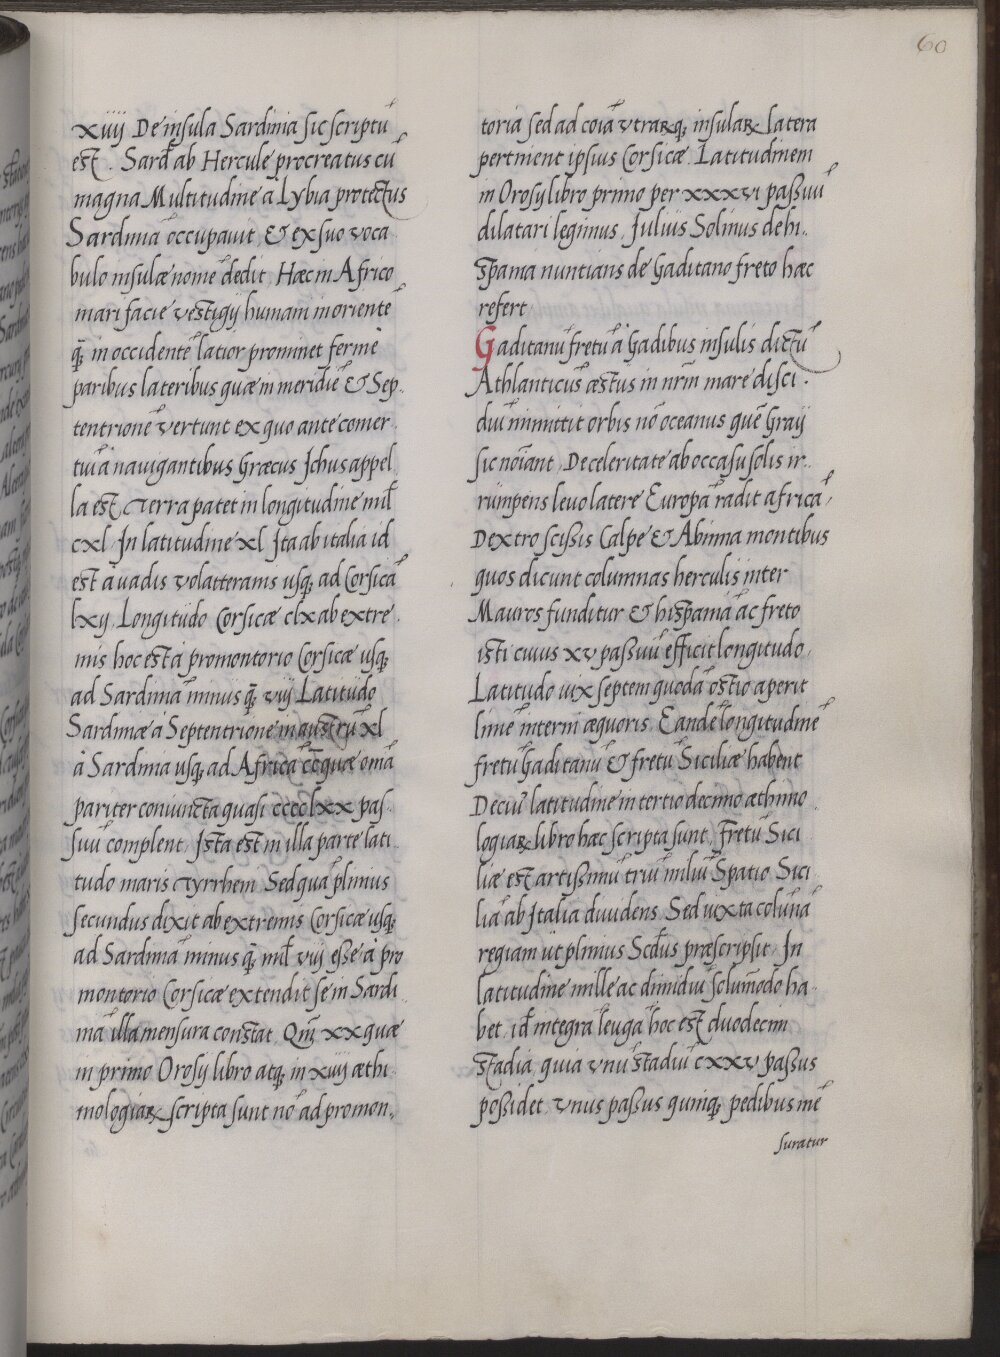 60
xiiij De insula Sardinia sic scriptū
est. Sard' ab Hercule procreatus cū
magna Multitudine a Lybia protectus
Sardiniā occupauit, & ex suo voca
bulo insulæ nomē dedit, Hæc in Africo
mari facie vestigij humani in orientē
q̄, in occidentē latior prominet fermè
paribus lateribus quæ in meridiē & Sep..
tentrionē vertunt ex quo ante comer.
tuiā nauigantibus Græcus Ichus appel
la est, Terra patet in longitudine mil̄
cxl In latitudine xl Ita ab italia id
est à uadis volatterranis usq, ad Corsicā
lxij, Longitudo Corsicæ clx ab extre.
mis hoc est à promontorio Corsicæ usq,
ad Sardiniā minus q̄, viij Latitudo
Sardiniæ à Septentrione in austrū xl
à Sardinia usq, ad Africā cc̄ quæ omā
pariter coniuncta quasi cccclxx pas..
suū complent, Ista est in illa parte lati..
tudo maris Tyrrheni Sed quā plinius
secundus dixit ab extremis Corsicæ usq,
ad Sardiniā minus q̄, mil̄ viij esse à pro
montorio Corsicæ extendit se in Sardi..
niā illa mensura constat Qm̄ xx quæ
in primo Orosij libro atq, in xiiij æthi..
mologiaꝝ scripta sunt nō ad promon,
toria sed ad coiā vtraꝝq, insulaꝝ latera
pertinent ipsius Corsicæ. Latitudinem
in Orosij libro primo per xxxvi passuū
dilatari legimus, Juliis Solinus de hi..
spania nuntians de Gaditano freto hæc
refert
Gaditanū fretū à Gadibus insulis dictū
Athlanticus æstus in nr̄m mare disci.
diū inmittit orbis nō oceanus quē Graij
sic noīant, De celeritate ab occasu solis ir..
rumpens leuo latere Europā radit africā,
Dextro scissis Calpe & Abinna montibus
quos dicunt columnas herculis inter
Mauros funditur & hispaniā ac freto
isti cuius xv passuū efficit longitudo,
Latitudo uix septem quodā ostio aperit
limē interni æquoris. Eandē longitudinē
fretū Gaditanū & fretū Siciliæ habent
Deciu' latitudine in tertio decimo æthimo
logiaꝝ libro hæc scripta sunt, Fretū Sici
liæ est artissimū triū miliū Spatio Sici
liā ab Italia diuidens Sed iuxta colūnā
regiam ut plinius Scd'us præscripsit, In
latitudine mille ac dimidiū solūmodo ha..
bet, id' integra leuga hoc est duodecim
stadia, quia vnū stadiū cxxv passus
possidet, vnus passus quinq, pedibus mē
suratur